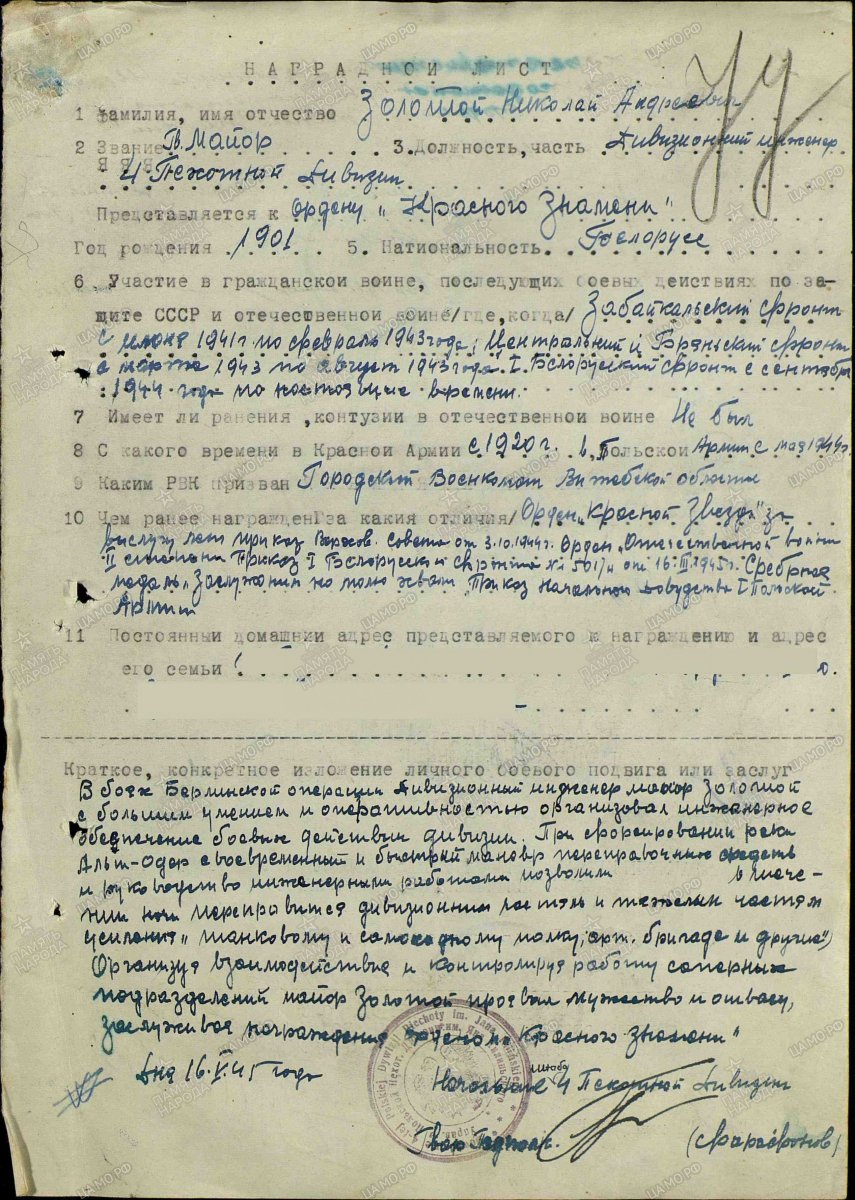 НАГРАДНОИ ЛИСТ
1 Фамилия, имя отчество Золотой Николай Андреевич
2 Звание Гв. Майор 3. Должность, часть Дивизионный инженер
4 Пехотной Дивизии
Представляется к Ордену „Красного Знамени"
Год рождения 1901 5. Натиональность Белорусс
6 Участие в гражданскои воине, последующих боевых деиствиях по за-
щите СССР и отечественнои воине/где, когда/ Забайкальский фронт
с июня 1941г по февраль 1943 года, Центральний и Брянский фронт
с марта 1943 по август 1943 года. I. Белорусский фронт с сентября
1944 года по настоящие времени.
7 Имеет ли ранения ,контузии в отечественнои воине Не был
8 С какого времени в Краснои Армии с 1920г. в Польскои Армии с мая 1944г.
9 Каким РВК призван Городский Военкомат Витебской области
10 Чем ранее награжден/за какия отличия/ Орден „Красной Звезды" за
выслугу лет приказ Верхов. Совета от 3.10.1944г. Орден „Отечественной войны
II степени Приказ I Белорусский фронт № 501/н от 16.III.1945г. Сребрная
медаль „Заслужоним на полю хвали Приказ Начальник Довудства I Польской
Армии
11 Постоянныи домашнии адрес представляемого к награждению и адрес
его семьи
Краткое, конкретное изложение личного боевого подвига или заслуг
В боях Берлинской операции Дивизионный инженер майор Золотой
с большим умением и оперативностью организовал инженерное
обеспечение боевых действии дивизии. При форсировании реки
Альт-Одер своевременный и быстрый маневр переправочных средств
и руководство инженерными работами позволили в тече-
нии ночи переправится дивизионним и тяжелим частям
усиления „танковому и самоходному полку, арт. бригаде и другие")
Организуя взаимодействие и контролируя работу саперных
подразделений майор Золотой проявил мужество и отвагу,
заслуживая награждения орденом „Красного Знамени"
Дня 16.V.45 года
Начальник штаба 4 Пехотной Дивизии
Гвар Подполк. (Фарафонов)
ПАМЯТЬ НАРОДА
ЦАМО.РФ